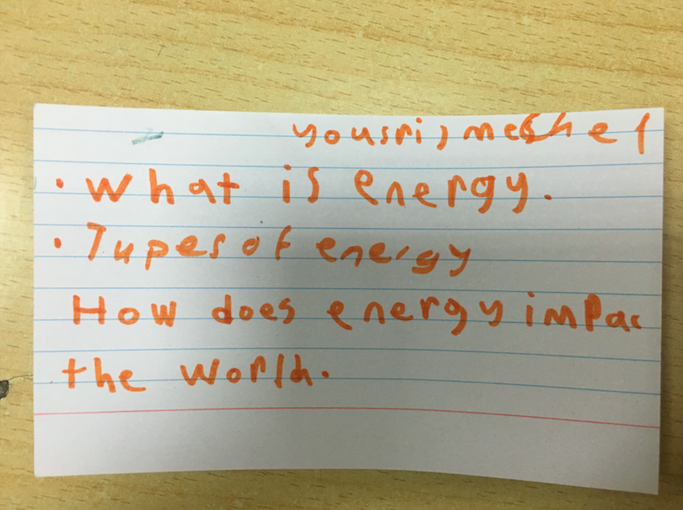 yousri, meshef
• What is energy.
• Tupes of energy
How does energy impac
the world.